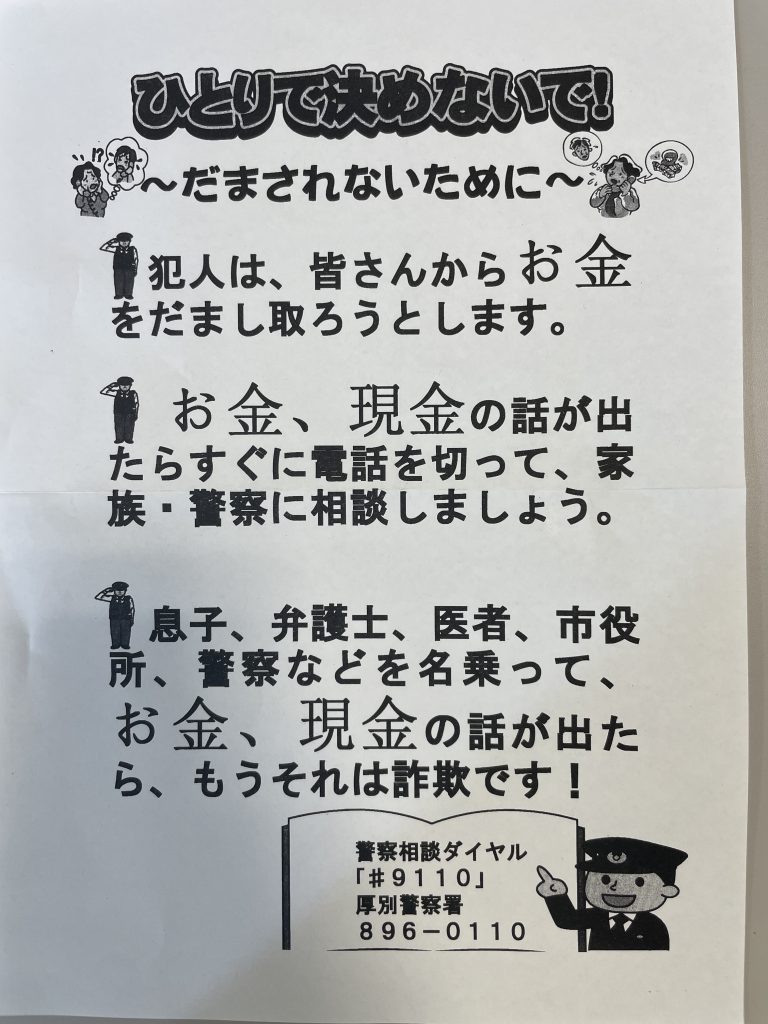 ひとりで決めないで！
！？
～だまされないために～
犯人は、皆さんからお金
をだまし取ろうとします。
お金、現金の話が出
たらすぐに電話を切って、家
族・警察に相談しましょう。
息子、弁護士、医者、市役
所、警察などを名乗って、
お金、現金の話が出た
ら、もうそれは詐欺です！
警察相談ダイヤル
「♯９１１０」
厚別警察署
８９６－０１１０